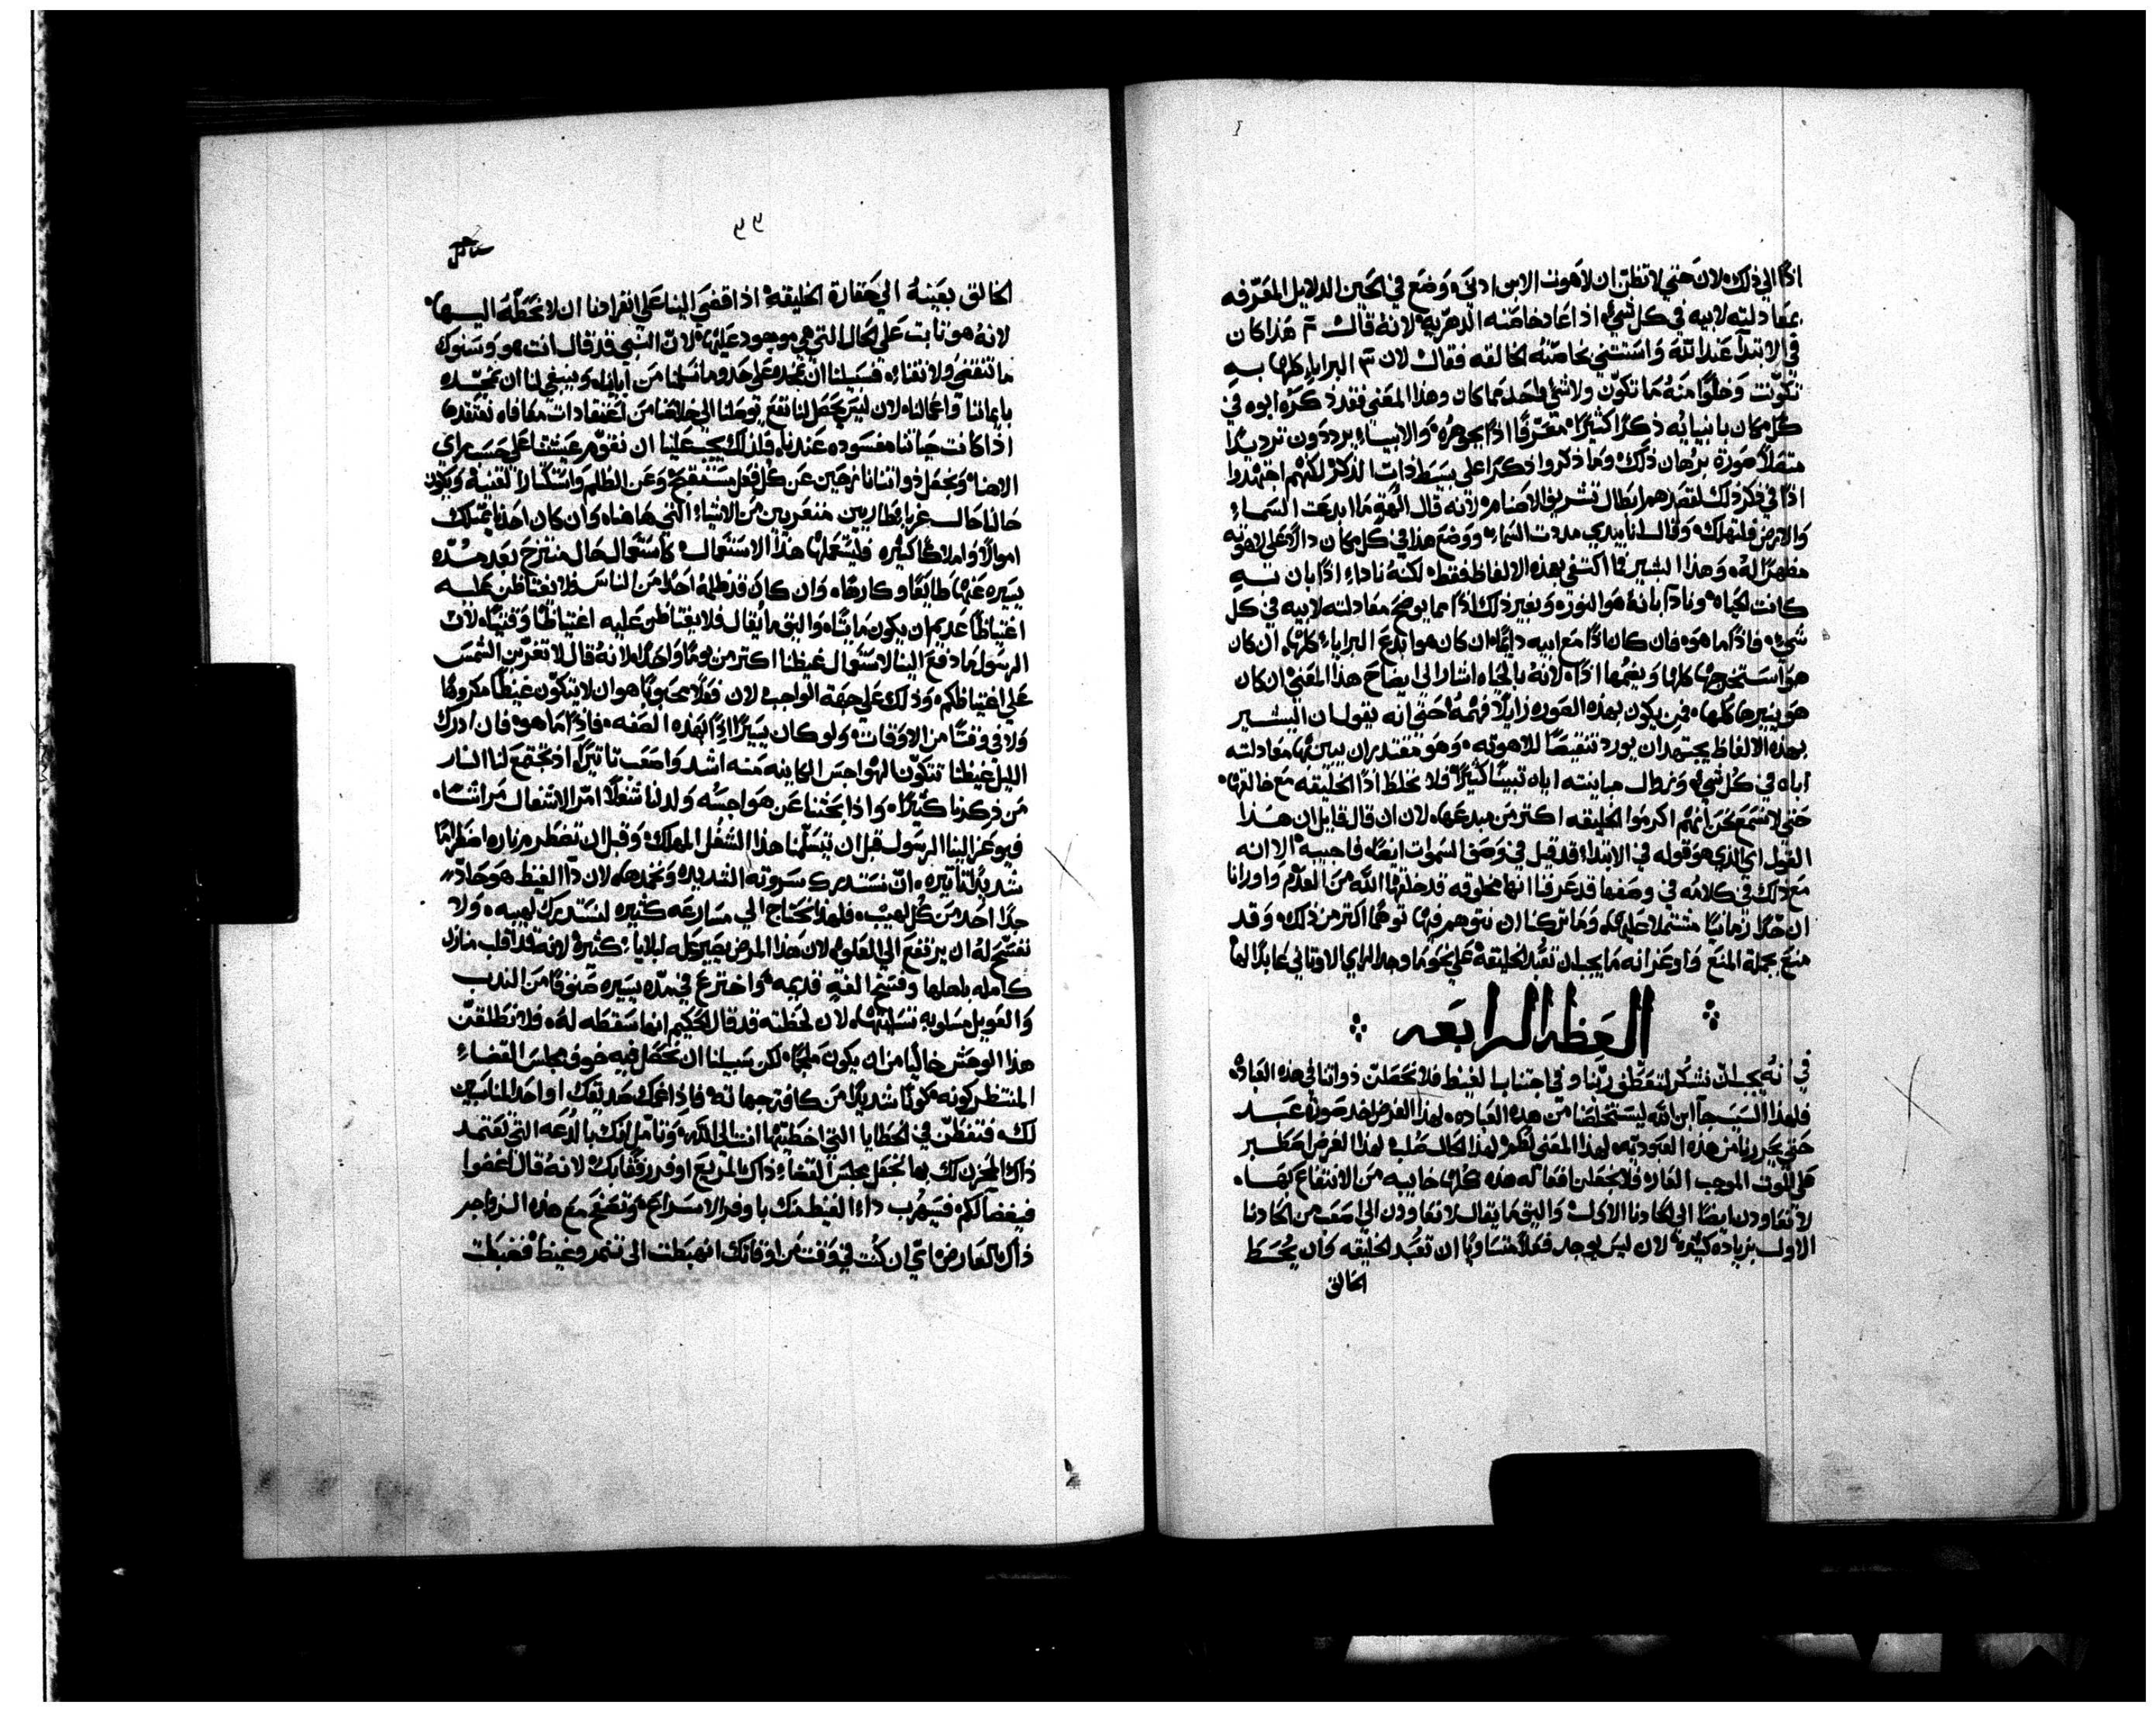 اذًا الي ذلك لان حتي لا تظن ان لاهوت الابن ادني وضع في الحين الدلايل المعرفه
بمعادلته لابيه في كل شي اذا عاد خاصته الدهريه لانه قال ثم هذا كان
في الابتدآ عند الله واستثني بخاصته الخالقه فقال لان ثم البرايا كلها به
تكونت وخلوًا منه ما تكون ولا شي واحد مما كان وهذا المعني فقد ذكره ابوه في
كل مكان بانبيايه ذكرًا كثيرًا معرفًا اذًا بجوهره والانبياء يرددون ترديدًا
متصلًا صورة برهان ذلك وما ذكروا ذكرًا علي بسيط ذات الذكر لكنهم اجتهدوا
اذًا في ذكر ذلك لقصدهم ابطال تشريف الاصنام لانه قال الهة ما ابدعت السماء
والارض فلتهلك وقال انا بيدي مددت السماء ووضع هذا في كل مكان دالًا علي لاهوته
مظهرًا له وهذا البشير فما اكتفي بهذه الالفاظ فقط لكنه ناداه اذًا بان به
كانت الحياه ونادا بانه هو النور وبغير ذلك اذًا مما يوضح معادلته لابيه في كل
شي فاذًا ما هو فان كان اذًا مع ابيه دايمًا ان كان هو ابدع البرايا كلها ان كان
هو استخرجها كلها ويضمها اذًا لانه بالحياه اشار الي ايضاح هذا المعني ان كان
هو ينيرها كلها فمن يكون بهذه الصوره زايلًا فهمه حتي انه يقول ان البشير
بهذه الالفاظ يجتهد ان يورد تنقيصًا للاهوته وهو مقتدر ان يبين بها معادلته
اباه في كل شي وبطال مباينته اياه تبينًا كثيرًا فلا نخلط اذًا الخليقه مع خالقها
حتي لا نسمع نحن انهم اكرموا الخليقه اكثر من مبدعها لان ان قال قايل ان هذا
القول اي الذي هو قوله في الابتدا قد قيل في وصف السموات ايضًا فاجيبه الا انه
مع ذلك في كلامه في وصفها قد عرفنا انها مخلوقه قد خلقها الله من العدم واورانا
ان حدًا زمانيًا مشتملًا عليها وما تركنا ان نتوهم فيها توهمًا اكثر من ذلك وقد
منع بجملة المنع واوعز انه ما يجب ان تعبد الخليقة علي نحو ما وجد الراي الاوثاني عابدًا لها
العظه الرابعه
في انه يجب ان نشكر لتعطف ربنا وفي اجتناب الغيظ فلا نجعلن ذواتنا في هذه العباده
فلهذا السبب جآ ابن الله ليستخلصنا من هذه العباده لهذا الغرض اخد صورة عبد
حتي يحررنا من هذه العبوديه لهذا المعني لطم لهذا الحال صلب لهذا الغرض اصطبر
علي الموت الموجب العار فلا نجعلن افعاله هذه كلها خايبه من الانتفاع بها
لا نعاودن ايضًا الي الحادنا الاول واليق ما يقال لا نعاودن الي اصعب من الحادنا
الاول بزياده كثيره لان ليس يوجد فعلًا متساويًا ان تعبد الخليقه وان يحط
الخالق
٩٩
الخالق بعينه الي حقارة الخليقه اذا قضي الينا علي انفرادنا ان لا نحطه اليها
لانه هو ثابت علي الحال التي هي موجود عليها لان النبي قد قال انت هو وسنوك
ما تنقضي ولا تفنا فسبيلنا ان نمجده علي حدو ما تسلمنا من آباينا وينبغي لنا ان نمجده
بايماننا واعمالنا لان ليس يحصل لنا نفع يوصلنا الي خلاصنا من اعتقادات معافاه نعتقدها
اذا كانت حياتنا مفسوده عندنا فلذلك يجب علينا ان نقوم عيشتنا علي حسب راي
الاهنا ونجعل ذواتنا نازحين عن كل فعل مستقبح وعن الظلم واستكثار القنيه ويكون
حالنا حال غربا قطاريين متغربين من الاشياء التي هاهنا وان كان احدنا يمتلك
اموالًا واملاكًا كثيره فليستعملها هذا الاستعمال كاستعمال حال منتزح بعد مده
يسيره عنها طايعًا وكارهًا وان كان قد ظلمه احد من الناس فلا يغتاظن عليه
اغتياظًا عديمًا ان يكون مايتًا واليق ما يقال فلا يغتاظن عليه اغتياظًا وقتيًا لان
الرسول ما دفع الينا لاستعمال غيظنا اكثر من يومًا واحدًا لانه قال لا تغربن الشمس
علي اغتياظكم وذلك علي جهة الواجب لان فعلًا محبوبًا هو ان لا يتكون غيظًا مكروهًا
ولا في وقتًا من الاوقات ولو كان يسيرًا اذًا بهذه الصفه فاذًا ما هو فان ادرك
الليل غيظنا تتكون الهواجس الكاينه منه اشد واصعب تاثيرًا اذ تجتمع لنا النار
من ذكرنا كثيرًا واذا بحثنا عن هواجسه ولد لنا شغلًا امر الاشغال مراتب
فيوعز الينا الرسول قبل ان نتسلمنا هذا الشغل المهلك وقبل ان تضطرم ناره اضطرامًا
شديدًا تاثيره ان نستدرك سورته الشديده ونخمدها لان دآ الغيظ هو حاد
جدًا احد من كل لهيب فلهذا نحتاج الي مسارعه كثيره لنستدرك لهيبه ولا
نفتح له ان يرتفع الي العلو لان هذا المرض يصير عله لبلايا كثيره لانه قد اقلب منازل
كامله باهلها وفسخ الفه قديمه واخترع في مده يسيره صنوفًا من الندب
والعويل مسلوبه تسليتها لان لحظته قد قال الحكيم انها سقطه له فلا نطلقن
هذا الوحش خاليًا من ان يكون ملجمًا لكن سبيلنا ان نجعل فيه خوف مجلس القضاء
المنتظر كونه كونًا شديدًا من كافة جهاته فاذا غمك صديقك او احد المناسبين
لك فتفطن في الخطايا التي اخطيتها انت الي الله وتامل انك بالدعه التي تعتمد
ذاك المحزن لك بها تجعل مجلس القضاء ذاك المريع اوفر رفقًا بك لانه قال اغفروا
فيغفر لكم فسيهرب داء الغيظ منك باوفر الاسراع وتصفح مع هذه الزواجر
ذاك العارض اعني ان كنت في وقت من اوقاتك انهبطت الي تنمر وغيظ فضبطت